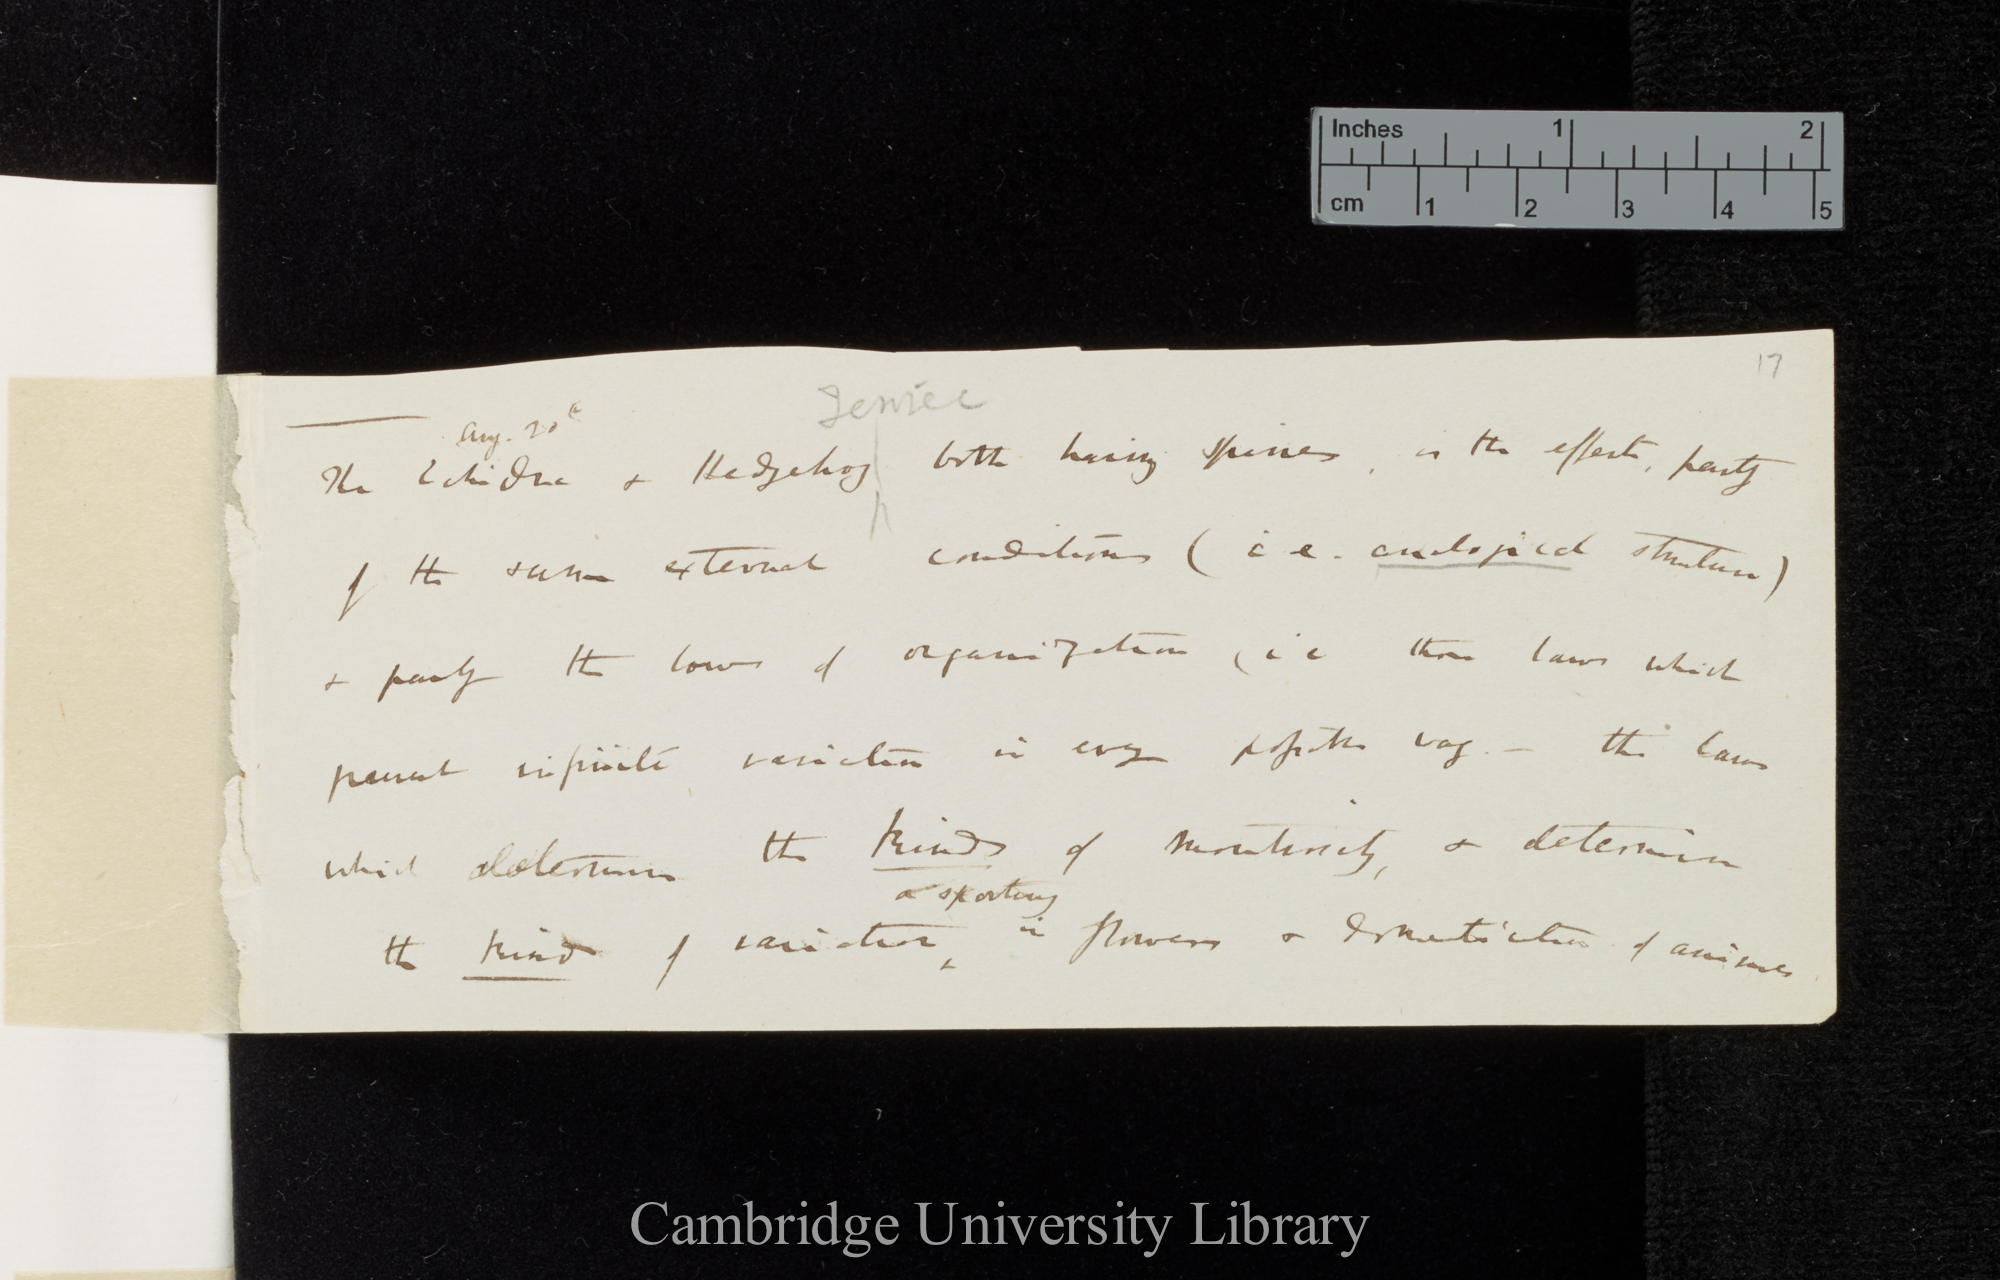 Inches 1 2
cm 1 2 3 4 5
17
Tenrec
Aug. 20th
The Echidna & Hedgehog both having spines, is the effects, partly
of the same external conditions (i.e. analogical structure)
& partly the laws of organization (i.e those laws which
prevent infinite variation in every possible way. — the laws
which determine the kinds of monstrosity, & determine
or sporting
the kind of variation, in flowers & domestication of animals
Cambridge University Library